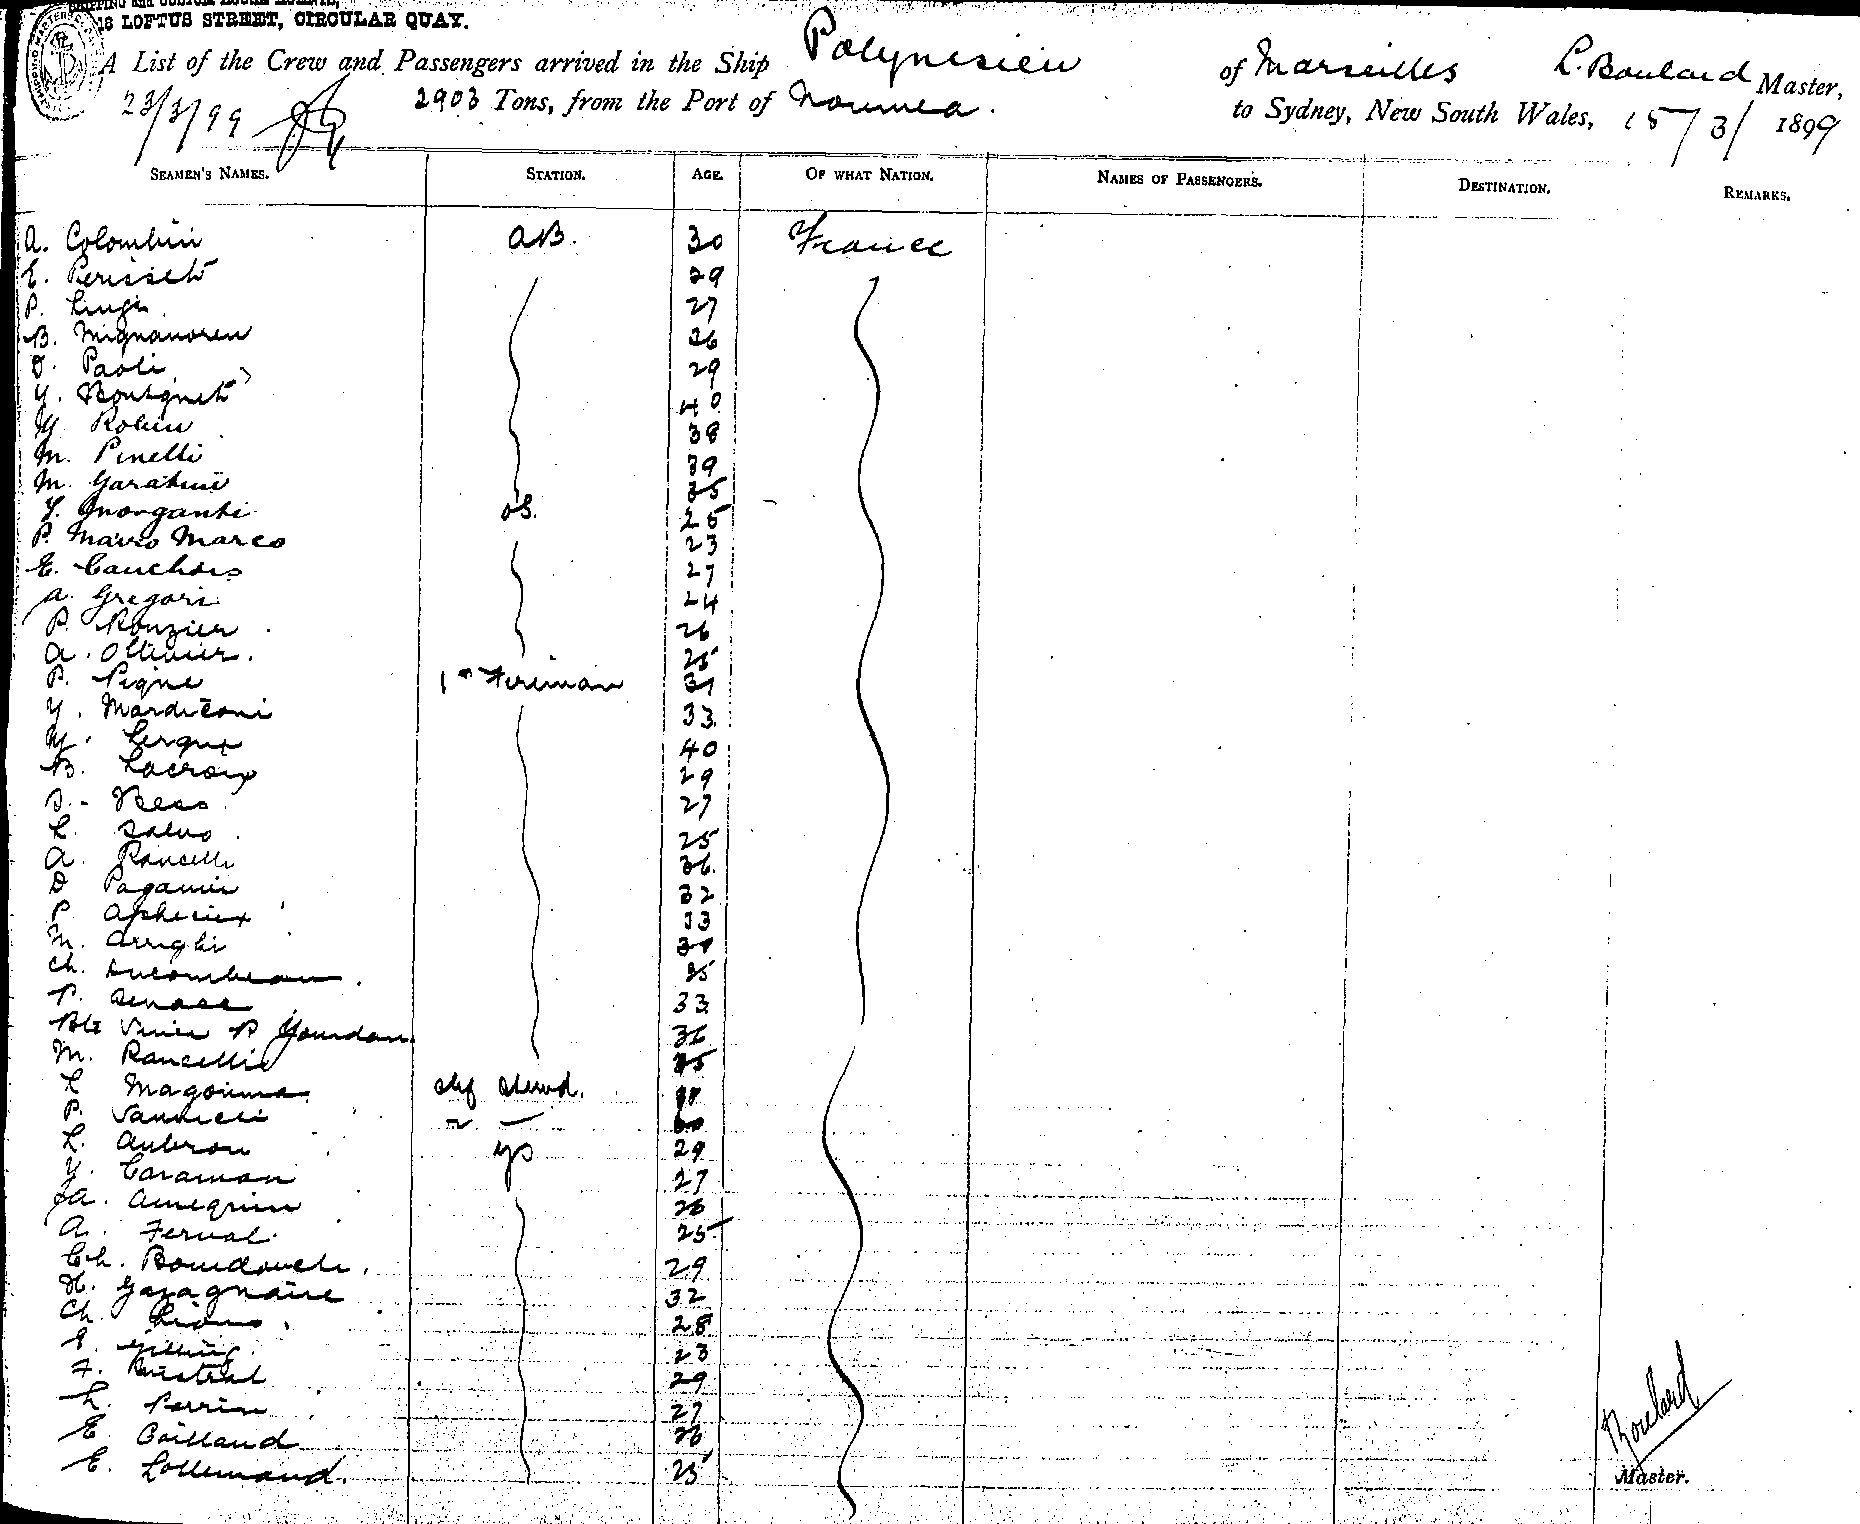 18 LOFTUS STREET, CIRCULAR QUAY.
A List of the Crew and Passengers arrived in the Ship Polynesien of Marseilles L. Boulard Master,
23/3/99 2903 Tons, from the Port of Noumea. to Sydney, New South Wales, 15/3/1899
SEAMEN'S NAMES. STATION. AGE. OF WHAT NATION. NAMES OF PASSENGERS. DESTINATION. REMARKS.
A. Colombin AB. 30 France
E. Perisset 29
P. Lingi 27
B. Mignanoren 36
Paoli 29
Y. Boutquet 40
Y. Robin 38
M. Pinelli 39
M. Garatini 35
Y. Morganti OS. 25
P. Mavro Marco 23
E. Cauchois 27
A. Gregori 24
P. Rouzier 26
A. Ollivier. 25
P. Pigne 1st Fireman 37
Y. Marditoni 33
40
B. Lacroix 29
27
L. Salvo 25
A. Rancelli 36
D Paganin 32
P. 33
M. Arrighi
Ch. Ducombeau. 35
P. 33
P Gourdan 36
M. Rancelli 35
L Magonna Stewd.
P. Vannucci
L. Aubron 29
Y. Caraman 27
A. Amegrin 26
A. Ferval 25
Ch. Bourdouch. 29
H. Gazagnaire 32
Ch. 28
23
F. Mistral 29
L. Perrin 27
E. Gailland 26
E. Lollemand. 25
Boulard
Master.